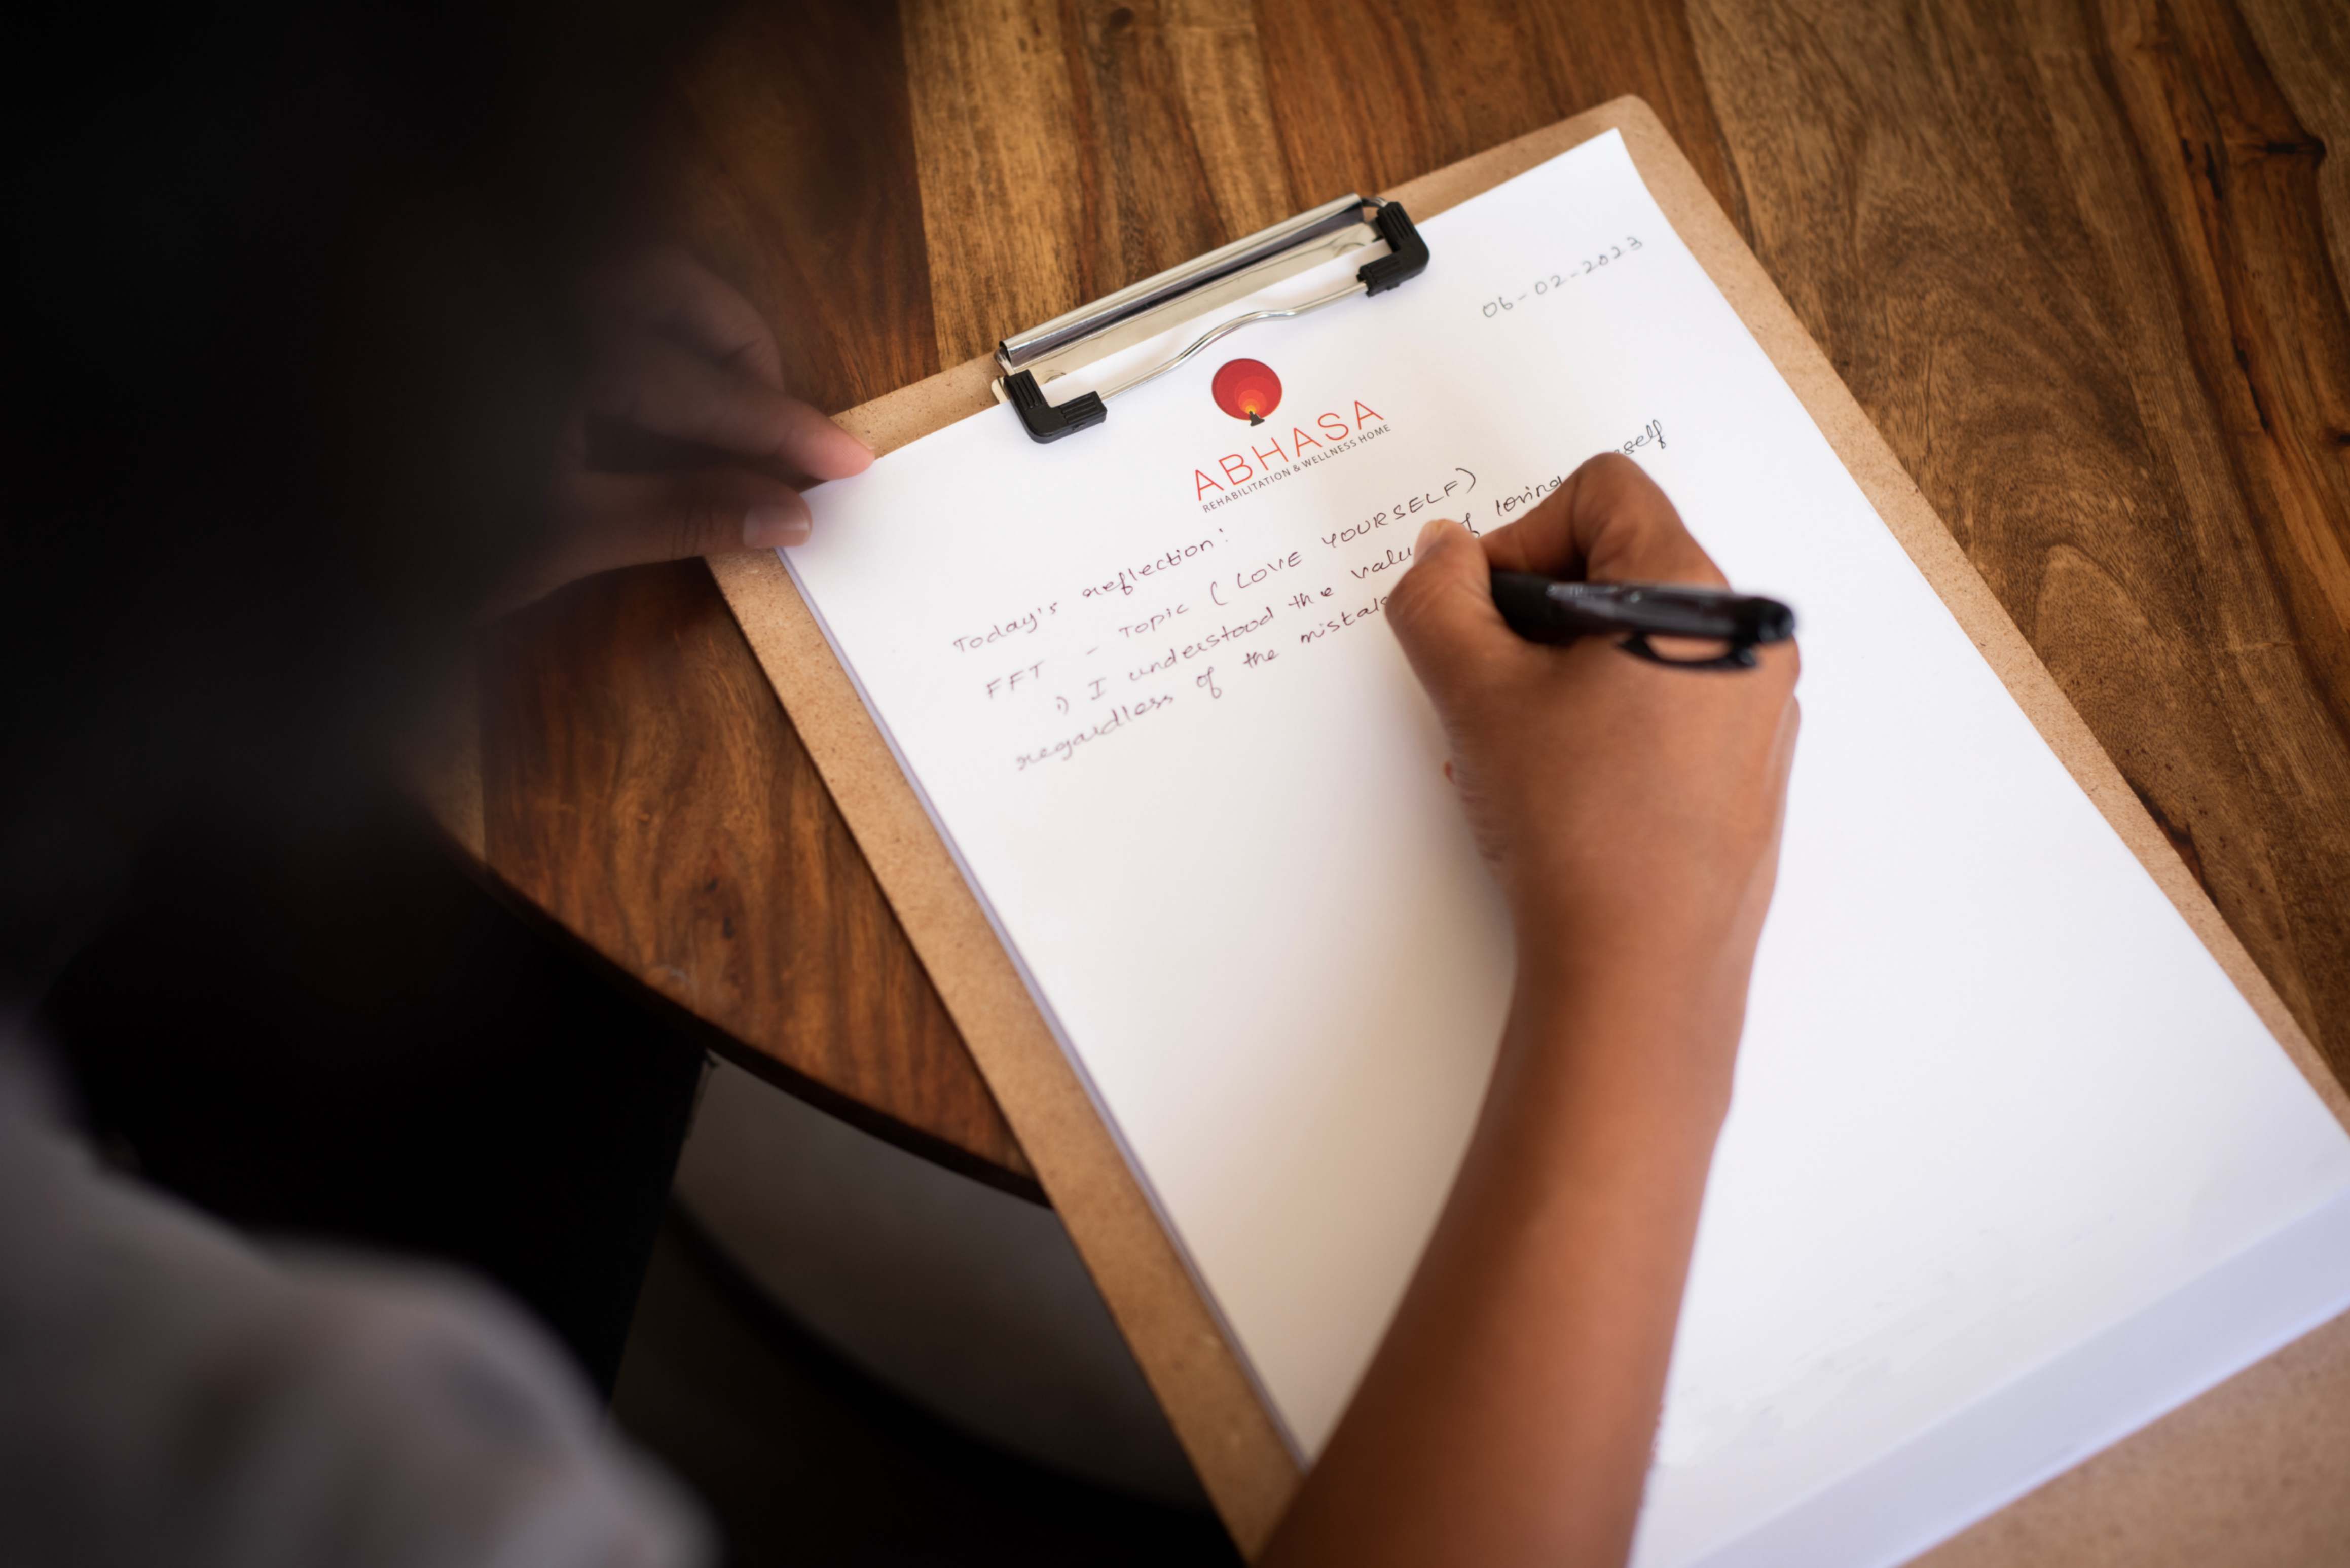 06-02-2023
ABHASA
REHABILITATION & WELLNESS HOME
Today's reflection:
FFT - Topic (LOVE YOURSELF)
1) I understood the value of loving
regardless of the